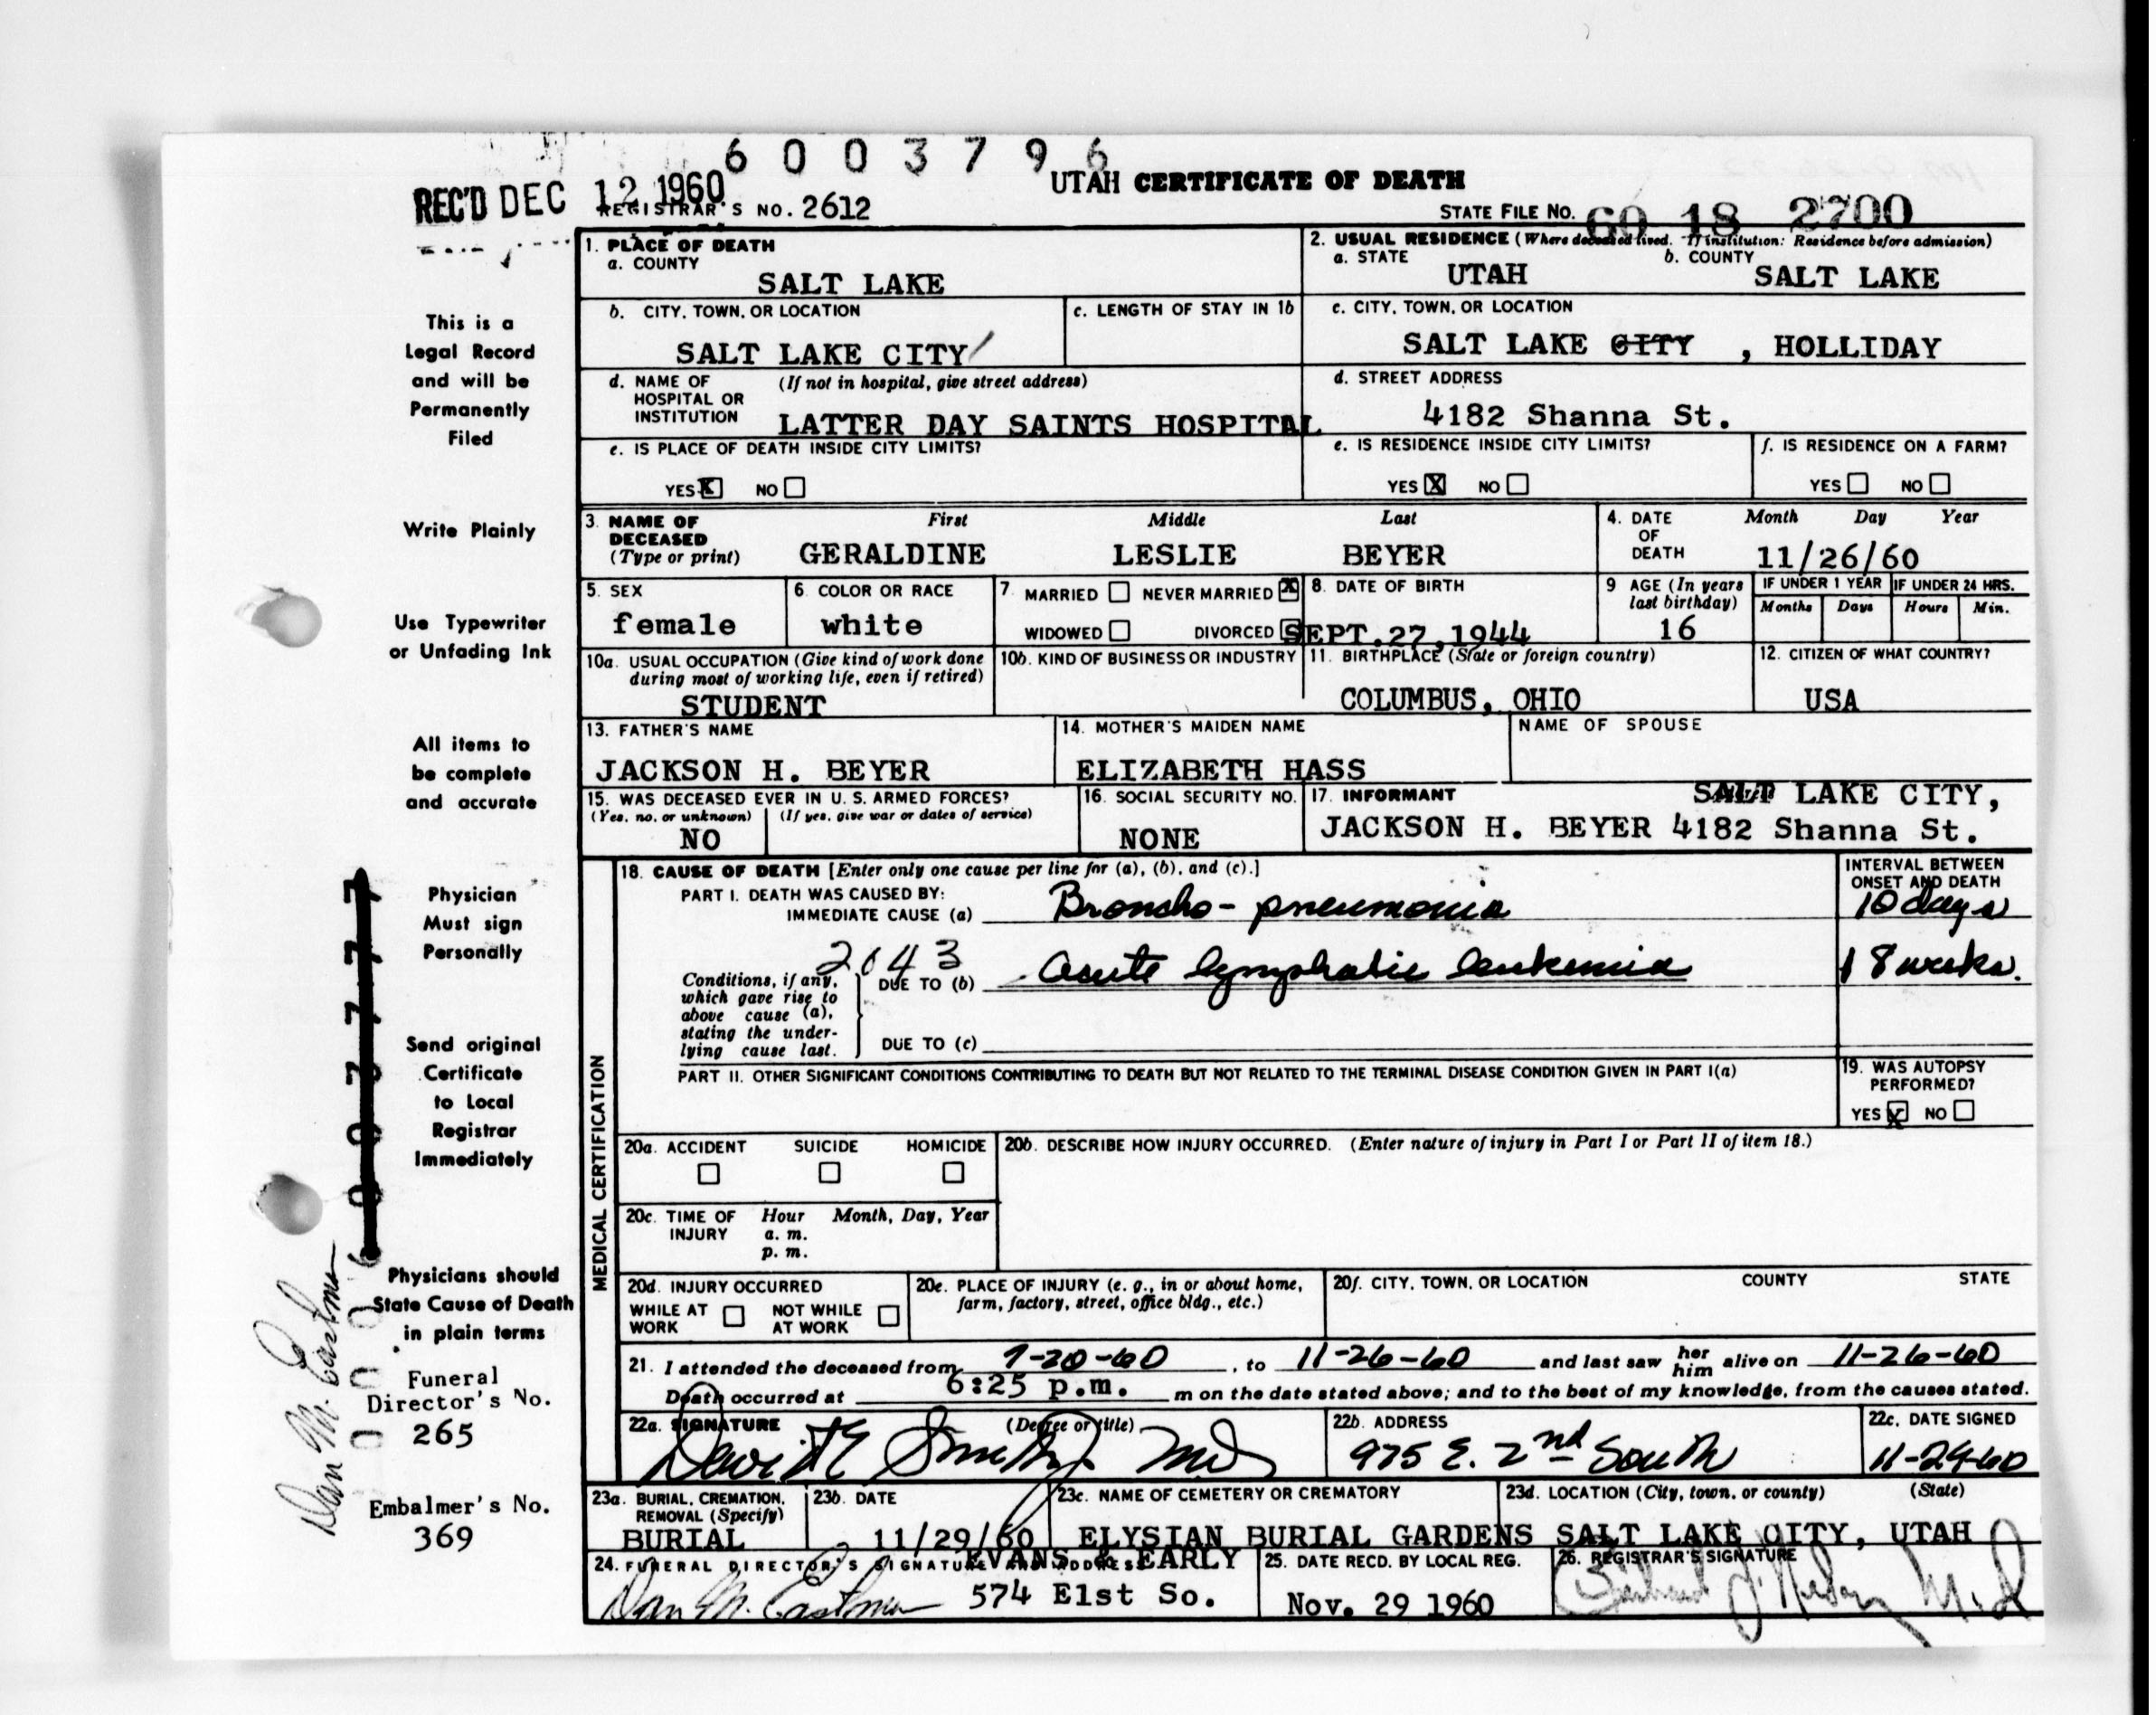 6003796
REC'D DEC 12 1960
UTAH CERTIFICATE OF DEATH
REGISTRAR'S NO. 2612
STATE FILE NO. 60 18 2700
1. PLACE OF DEATH
a. COUNTY
SALT LAKE
2. USUAL RESIDENCE (Where deceased lived. If institution: Residence before admission)
a. STATE
UTAH
b. COUNTY
SALT LAKE
b. CITY, TOWN, OR LOCATION
SALT LAKE CITY
c. LENGTH OF STAY IN 1b
c. CITY, TOWN, OR LOCATION
SALT LAKE CITY , HOLLIDAY
d. NAME OF HOSPITAL OR INSTITUTION
(If not in hospital, give street address)
LATTER DAY SAINTS HOSPITAL
d. STREET ADDRESS
4182 Shanna St.
e. IS PLACE OF DEATH INSIDE CITY LIMITS?
YES X NO
e. IS RESIDENCE INSIDE CITY LIMITS?
YES X NO
f. IS RESIDENCE ON A FARM?
YES NO
3. NAME OF DECEASED
(Type or print)
First Middle Last
GERALDINE LESLIE BEYER
4. DATE OF DEATH
Month Day Year
11/26/60
5. SEX
female
6. COLOR OR RACE
white
7. MARRIED NEVER MARRIED X
WIDOWED DIVORCED
8. DATE OF BIRTH
SEPT.27,1944
9 AGE (In years last birthday)
16
IF UNDER 1 YEAR
Months Days
IF UNDER 24 HRS.
Hours Min.
10a. USUAL OCCUPATION (Give kind of work done during most of working life, even if retired)
STUDENT
10b. KIND OF BUSINESS OR INDUSTRY
11. BIRTHPLACE (State or foreign country)
COLUMBUS, OHIO
12. CITIZEN OF WHAT COUNTRY?
USA
13. FATHER'S NAME
JACKSON H. BEYER
14. MOTHER'S MAIDEN NAME
ELIZABETH HASS
NAME OF SPOUSE
15. WAS DECEASED EVER IN U. S. ARMED FORCES?
(Yes, no, or unknown) (If yes, give war or dates of service)
NO
16. SOCIAL SECURITY NO.
NONE
17. INFORMANT
SALT LAKE CITY,
JACKSON H. BEYER 4182 Shanna St.
MEDICAL CERTIFICATION
18. CAUSE OF DEATH [Enter only one cause per line for (a), (b), and (c).]
PART I. DEATH WAS CAUSED BY:
IMMEDIATE CAUSE (a) Broncho-pneumonia
INTERVAL BETWEEN ONSET AND DEATH
10 days
2043
Conditions, if any, which gave rise to above cause (a), stating the underlying cause last.
DUE TO (b) Acute lymphatic leukemia
18 weeks.
DUE TO (c)
PART II. OTHER SIGNIFICANT CONDITIONS CONTRIBUTING TO DEATH BUT NOT RELATED TO THE TERMINAL DISEASE CONDITION GIVEN IN PART I(a)
19. WAS AUTOPSY PERFORMED?
YES X NO
20a. ACCIDENT SUICIDE HOMICIDE
20b. DESCRIBE HOW INJURY OCCURRED. (Enter nature of injury in Part I or Part II of item 18.)
20c. TIME OF INJURY
Hour Month, Day, Year
a. m.
p. m.
20d. INJURY OCCURRED
WHILE AT WORK NOT WHILE AT WORK
20e. PLACE OF INJURY (e. g., in or about home, farm, factory, street, office bldg., etc.)
20f. CITY, TOWN, OR LOCATION COUNTY STATE
21. I attended the deceased from 7-20-60, to 11-26-60 and last saw her him alive on 11-26-60
Death occurred at 6:25 p.m. m on the date stated above; and to the best of my knowledge, from the causes stated.
22a. SIGNATURE (Degree or title)
David E Smith MD
22b. ADDRESS
975 E. 2nd South
22c. DATE SIGNED
11-29-60
23a. BURIAL, CREMATION, REMOVAL (Specify)
BURIAL
23b. DATE
11/29/60
23c. NAME OF CEMETERY OR CREMATORY
ELYSIAN BURIAL GARDENS
23d. LOCATION (City, town, or county) (State)
SALT LAKE CITY, UTAH
24. FUNERAL DIRECTOR'S SIGNATURE AND ADDRESS
EVANS & EARLY
Dan M. Eastman 574 E1st So.
25. DATE RECD. BY LOCAL REG.
Nov. 29 1960
26. REGISTRAR'S SIGNATURE
This is a
Legal Record
and will be
Permanently
Filed
Write Plainly
Use Typewriter
or Unfading Ink
All items to
be complete
and accurate
Physician
Must sign
Personally
Send original
Certificate
to Local
Registrar
Immediately
Physicians should
State Cause of Death
in plain terms
Funeral
Director's No.
265
Embalmer's No.
369
Dan M. Eastman